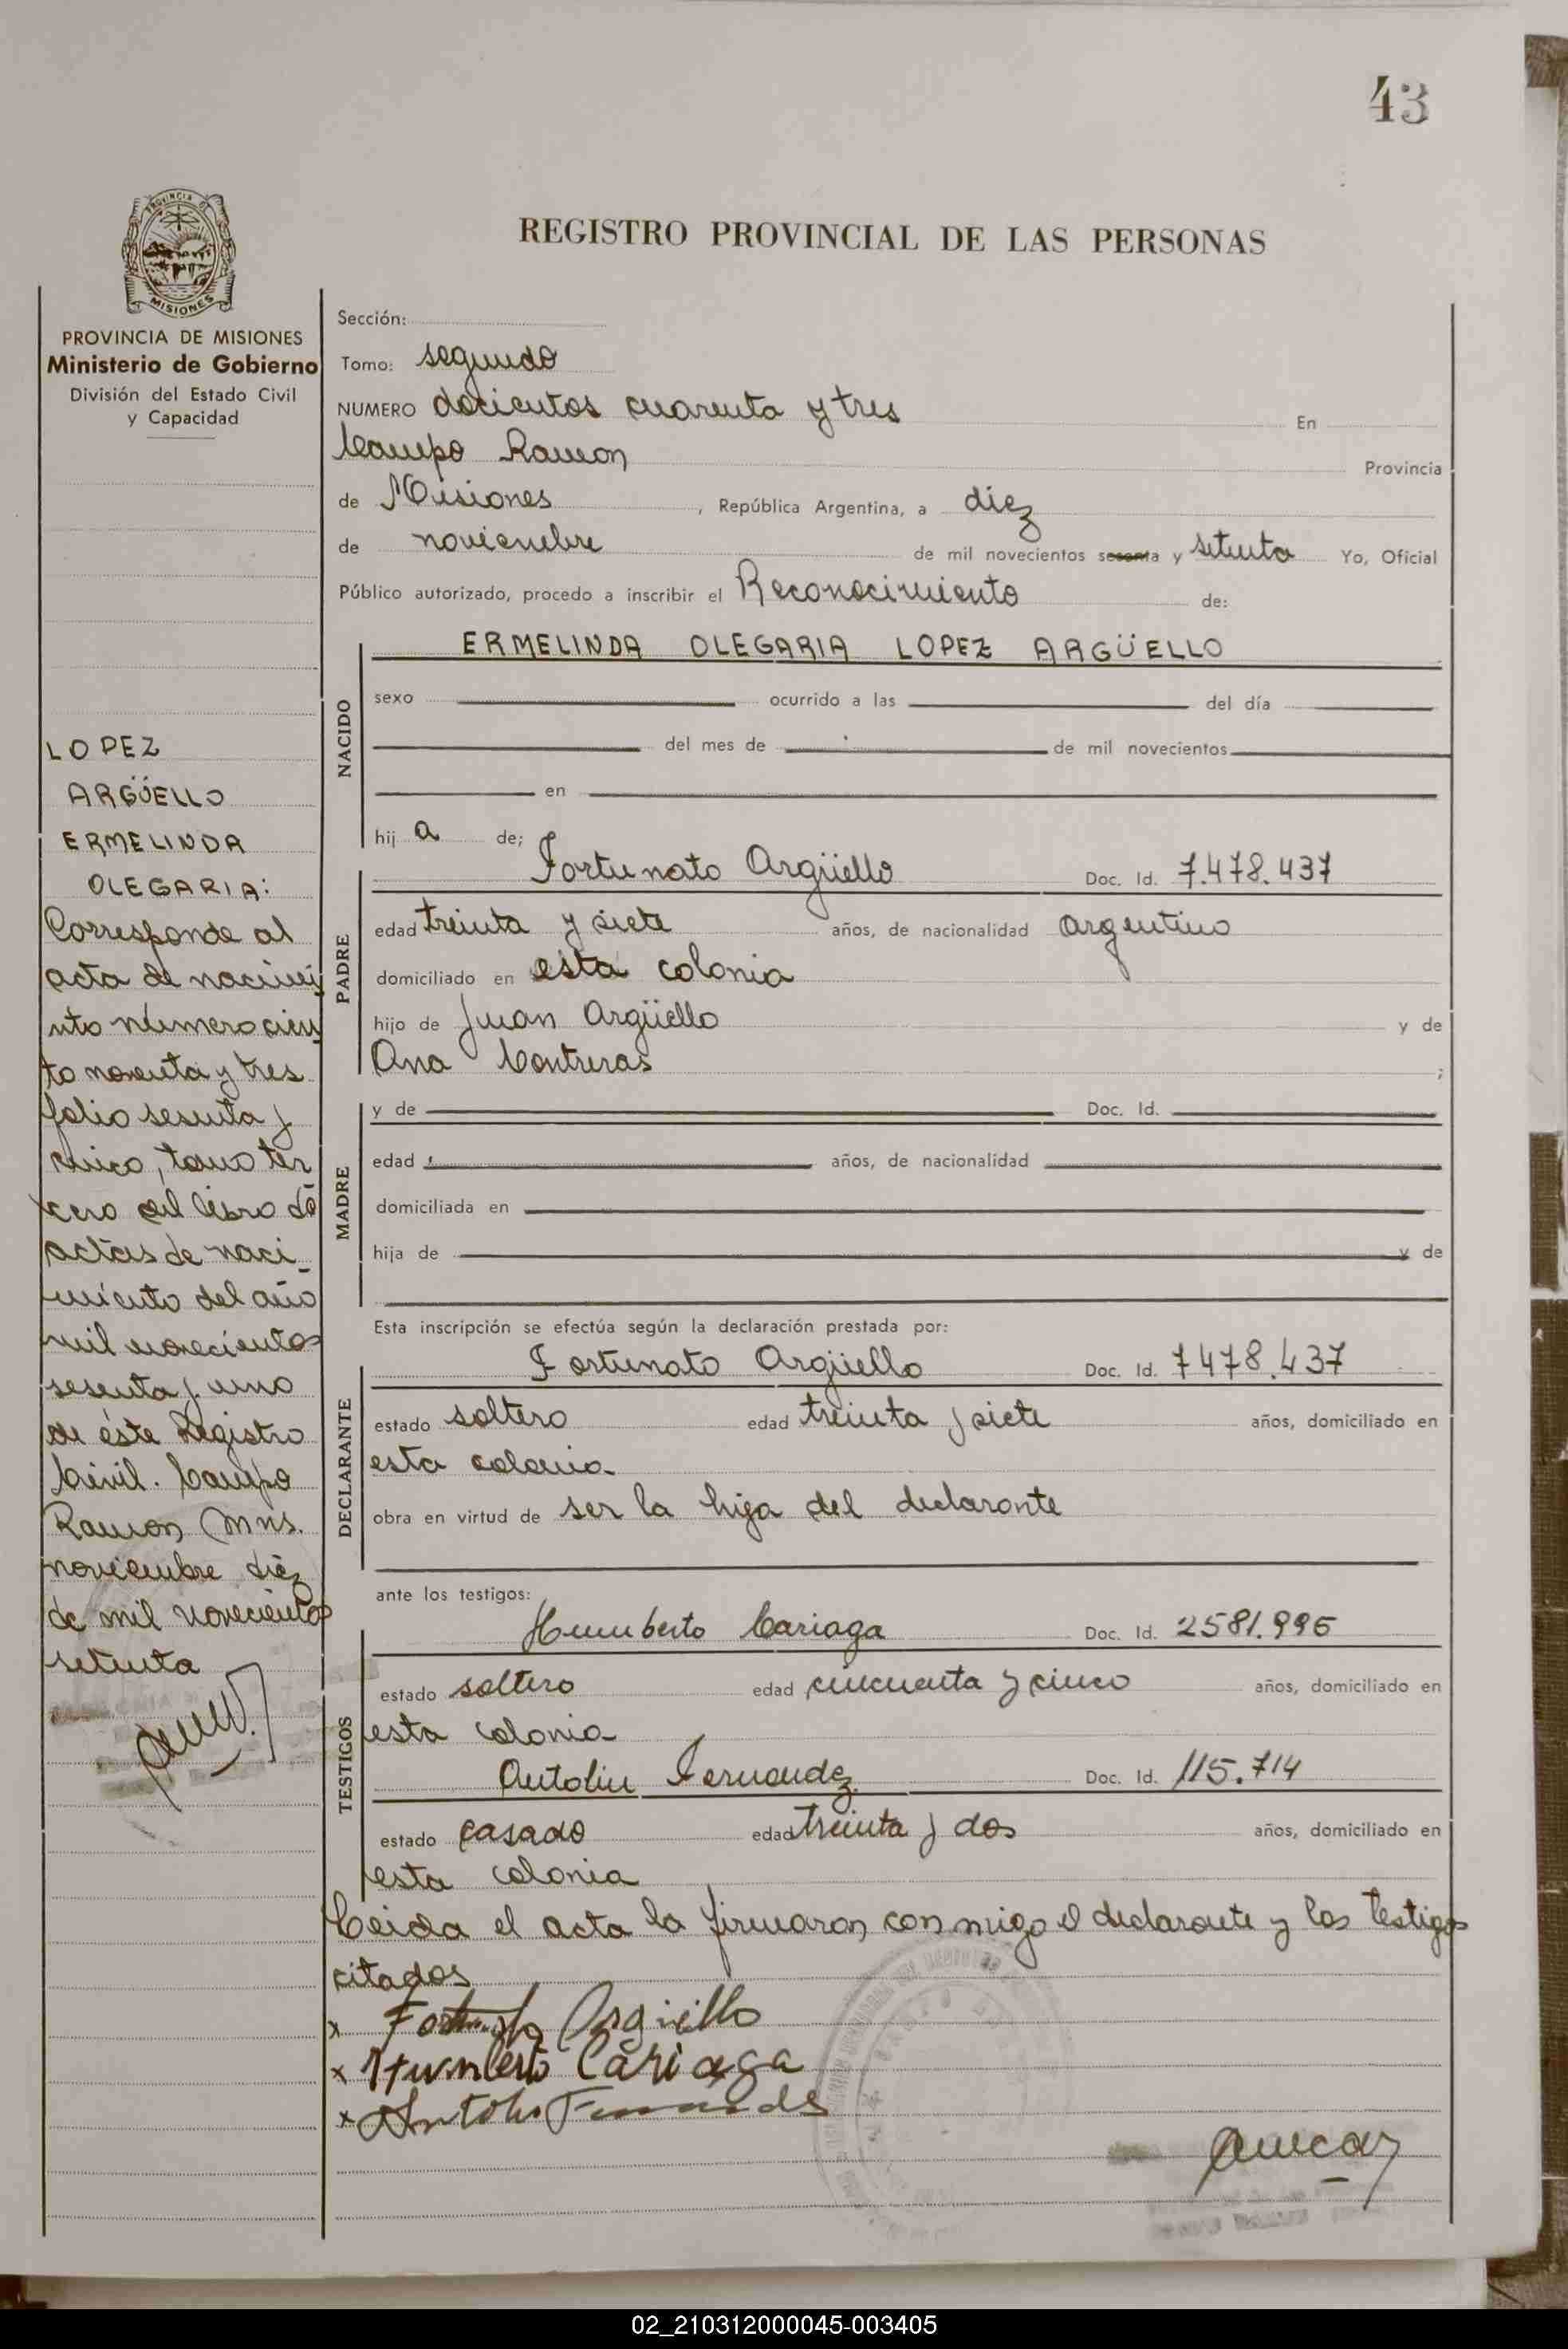 43
REGISTRO PROVINCIAL DE LAS PERSONAS
MISIONES
PROVINCIA DE MISIONES
Ministerio de Gobierno
División del Estado Civil
y Capacidad
LOPEZ
ARGÜELLO
ERMELINDA
OLEGARIA:
Corresponde al
acta de nacimi
nto número cien
to noventa y tres
folio sesenta y
cinco, tomo ter
cero del libro de
actas de naci_
miento del año
mil novecientos
sesenta y uno
de éste Registro
Civil. Campo
Ramon (Mns.
noviembre diez
de mil novecientos
setenta
Sección:
Tomo: segundo
NUMERO docientos cuarenta y tres En
Campo Ramon Provincia
de Misiones, República Argentina, a diez
de noviembre de mil novecientos sesenta y setenta Yo, Oficial
Público autorizado, procedo a inscribir el Reconocimiento de:
ERMELINDA OLEGARIA LOPEZ ARGÜELLO
NACIDO
sexo ocurrido a las del día
del mes de de mil novecientos
en
hij a de;
PADRE
Fortunato Argüello Doc. Id. 7.478.437
edad treinta y siete años, de nacionalidad argentino
domiciliado en esta colonia
hijo de Juan Argüello y de
Ana Contreras ;
MADRE
y de Doc. Id.
edad años, de nacionalidad
domiciliada en
hija de y de
Esta inscripción se efectúa según la declaración prestada por:
DECLARANTE
Fortunato Argüello Doc. Id. 7478.437
estado soltero edad treinta y siete años, domiciliado en
esta colonia
obra en virtud de ser la hija del declarante
ante los testigos:
TESTIGOS
Humberto Cariaga Doc. Id. 2581.995
estado soltero edad cincuenta y cinco años, domiciliado en
esta colonia
Antolin Fernandez Doc. Id. 115.714
estado casado edad treinta y dos años, domiciliado en
esta colonia
Leida el acta la firmaron con migo el declarante y los testigos
citados
x Fortunato Argüello
x Humberto Cariaga
x Antolin Fernandez
02_210312000045-003405